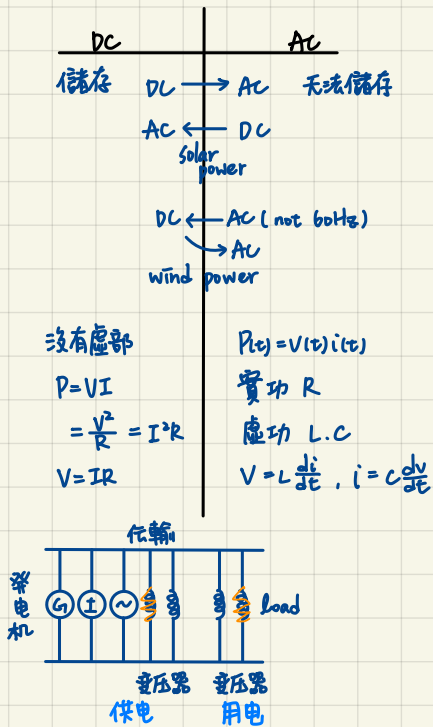 DC AC
儲存 DC → AC 无法儲存
AC ← DC
solar
power
DC ← AC (not 60Hz)
→ AC
wind power
沒有虛部 P(t) = V(t) i(t)
P = VI 實功 R
= V²/R = I²R 虛功 L.C
V = IR V = L di/dt , i = C dv/dt
传輸
發电机 G I ~ load
变压器 变压器
供电 用电